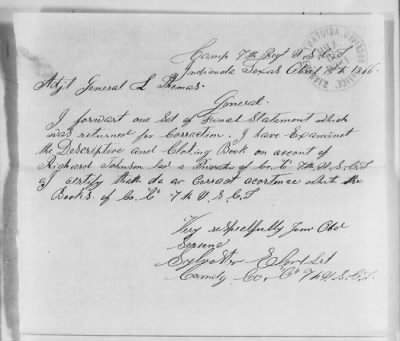 Camp 7th Regt U.S.C.T
Indianola Texas 1866
Adjt General L Thomas.
General.
I forward one Set of Final Statement which
was returned for Correction. I have Examined
the Descriptive and Clothing Book on acount of
Richard Johnson late a Private of Co. "C" 7th U.S.C.T
I certify that do ar Correct acordence with the
Books of Co. "C" 7th U.S.C.T
Very respectfully Your Obd
Servne
Sylvester E
Comdg Co. "C" 7th U.S.C.T.